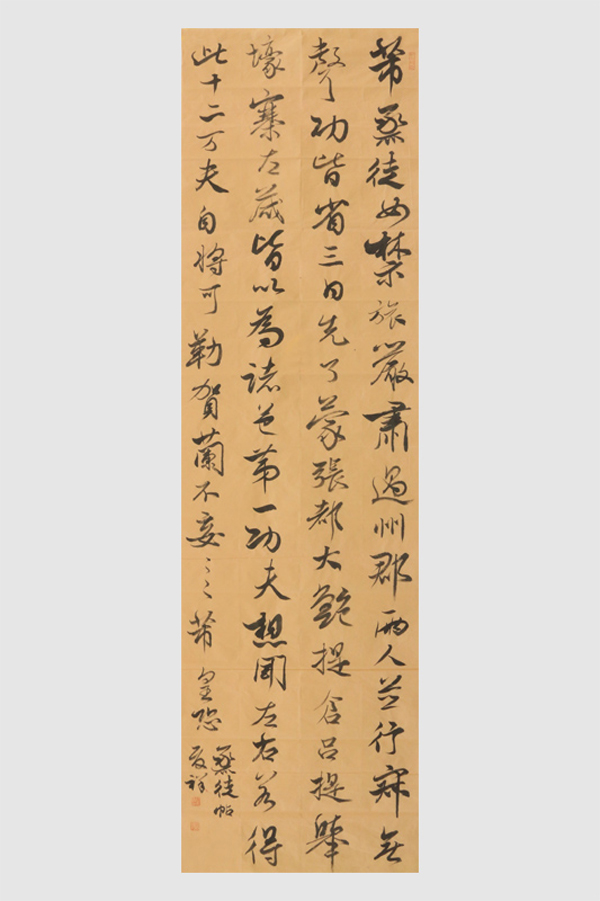 芾烝徒如禁旅嚴肅過州郡兩人並行寂無
聲功皆省三日先了蒙張都大鮑提倉呂提舉
壕寨左藏皆以為諸邑第一功夫想聞左右若得
此十二万夫自將可勒賀蘭不妄〻〻芾皇恐
烝徒帖
祥